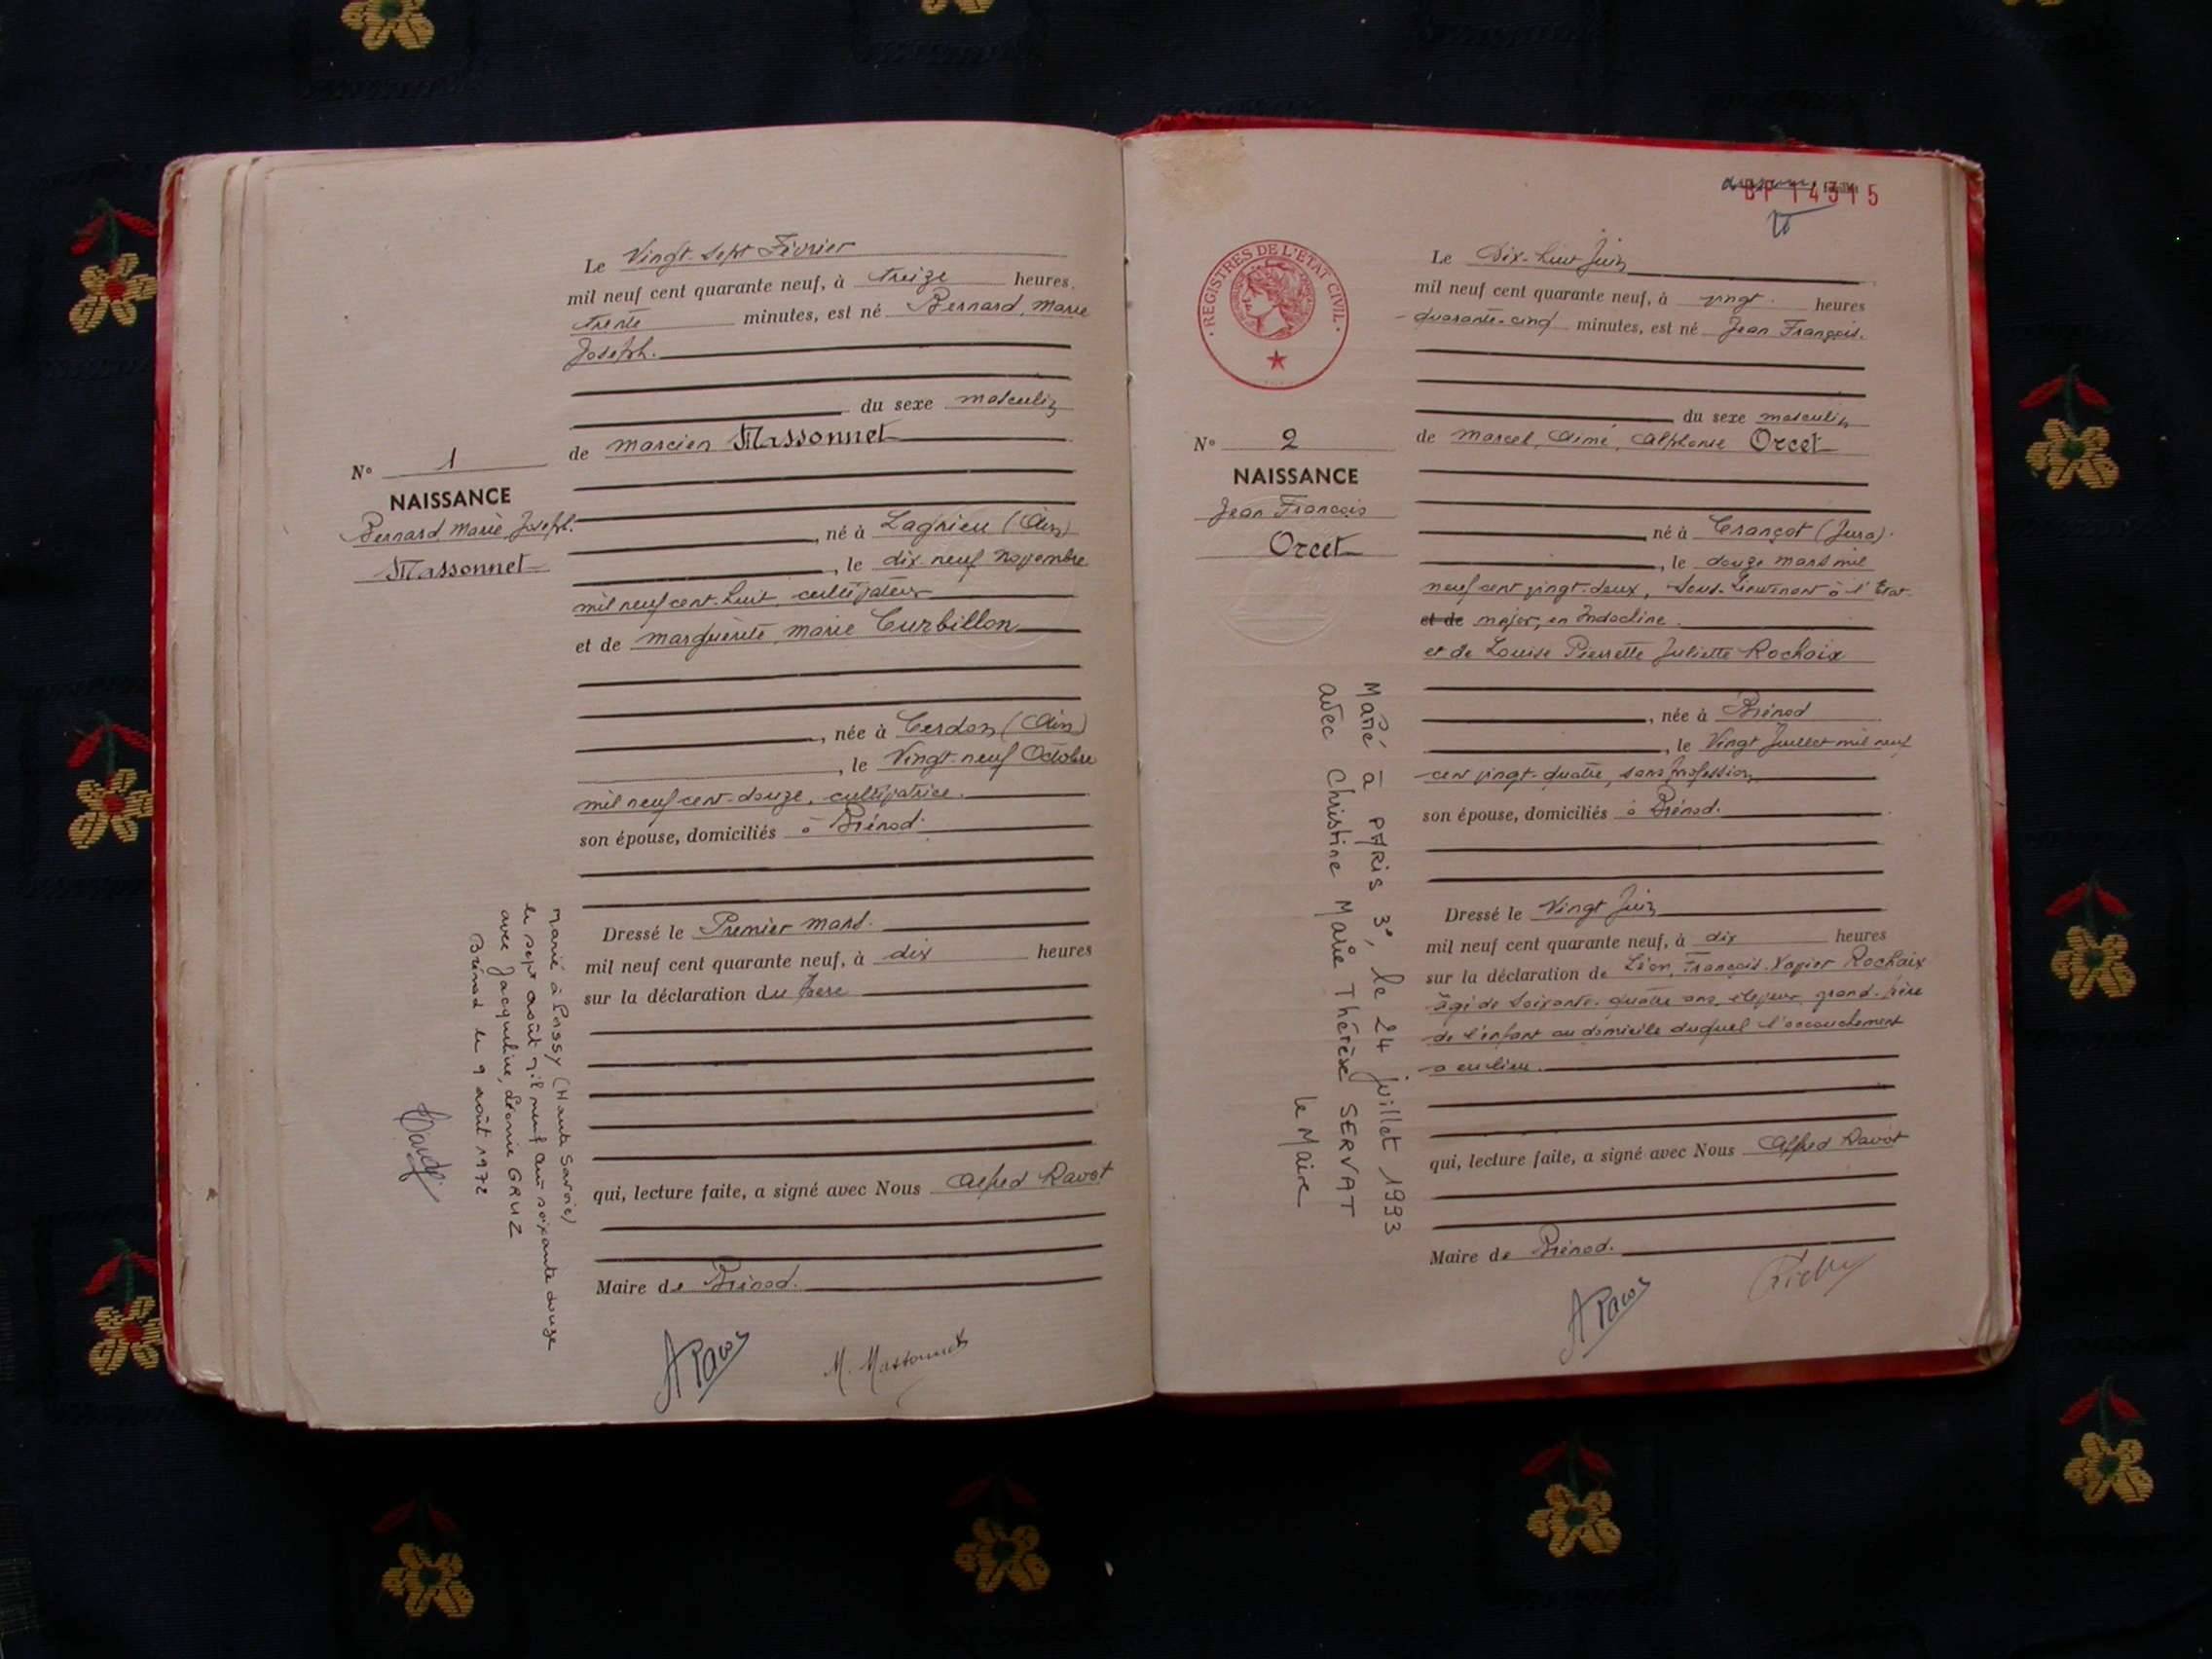 Le Vingt-sept Février
mil neuf cent quarante neuf, à treize heures,
trente minutes, est né Bernard, Marie
Joseph.
du sexe masculin
de Marcien Massonnet
N° 1
NAISSANCE
Bernard Marie Joseph.
Massonnet
, né à Lagnieu (Ain)
, le dix neuf novembre
mil neuf cent-huit, cultivateur
et de Marguerite, Marie Curbillon
, née à Cerdon (Ain)
, le Vingt-neuf Octobre
mil neuf cent-douze, cultivatrice.
son épouse, domiciliés à Brénod.
Dressé le Premier mars.
mil neuf cent quarante neuf, à dix heures
sur la déclaration du Père
qui, lecture faite, a signé avec Nous Alfred Ravot
Maire de Brénod.
A Ravot
M. Massonnet
Marié à Passy (Haute Savoie)
le sept août mil neuf cent soixante douze
avec Jacqueline, Léonie GRUZ
Brénod le 9 août 1972
BF 14315
REGISTRES DE L'ÉTAT CIVIL
Le Dix-huit Juin
mil neuf cent quarante neuf, à vingt heures
quarante-cinq minutes, est né Jean François.
du sexe masculin
de Marcel, Aimé, Alphonse Orcet
N° 2
NAISSANCE
Jean François
Orcet
né à Crançot (Jura).
, le douze mars mil
neuf cent vingt-deux, Sous-Lieutenant à l'Etat-
et de major, en Indochine.
et de Louise Pierrette Juliette Rochaix
, née à Brénod
, le Vingt Juillet mil neuf
cent vingt-quatre, sans profession,
son épouse, domiciliés à Brénod.
Dressé le Vingt Juin
mil neuf cent quarante neuf, à dix heures
sur la déclaration de Léon, François-Xavier Rochaix
âgé de soixante-quatre ans, éleveur, grand-père
de l'enfant au domicile duquel l'accouchement
a eu lieu.
qui, lecture faite, a signé avec Nous Alfred Ravot
Maire de Brénod.
A Ravot
Marié à PARIS 3°, le 24 juillet 1993
avec Christine Marie Thérèse SERVAT
le Maire